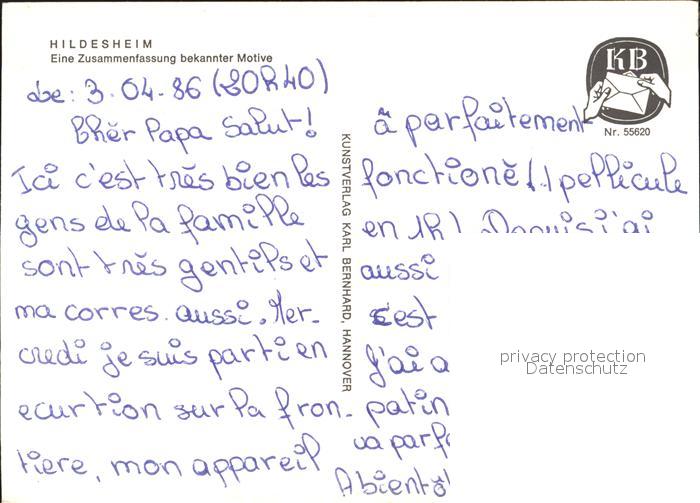 HILDESHEIM
Eine Zusammenfassung bekannter Motive
KB
Nr. 55620
KUNSTVERLAG KARL BERNHARD, HANNOVER
Le: 3.04.86 (20h40)
Chèr Papa Salut!
Ici c'est très bien les
gens de la famille
sont très gentils et
ma corres. aussi. Mer-
credi je suis parti en
ecurtion sur la fron-
tiere, mon appareil
à parfaitement
fonctioné (1 pellicule
en 1h) Depuis j'ai
aussi
c'est
J'ai a
patin
va parf
Abientô
privacy protection
Datenschutz